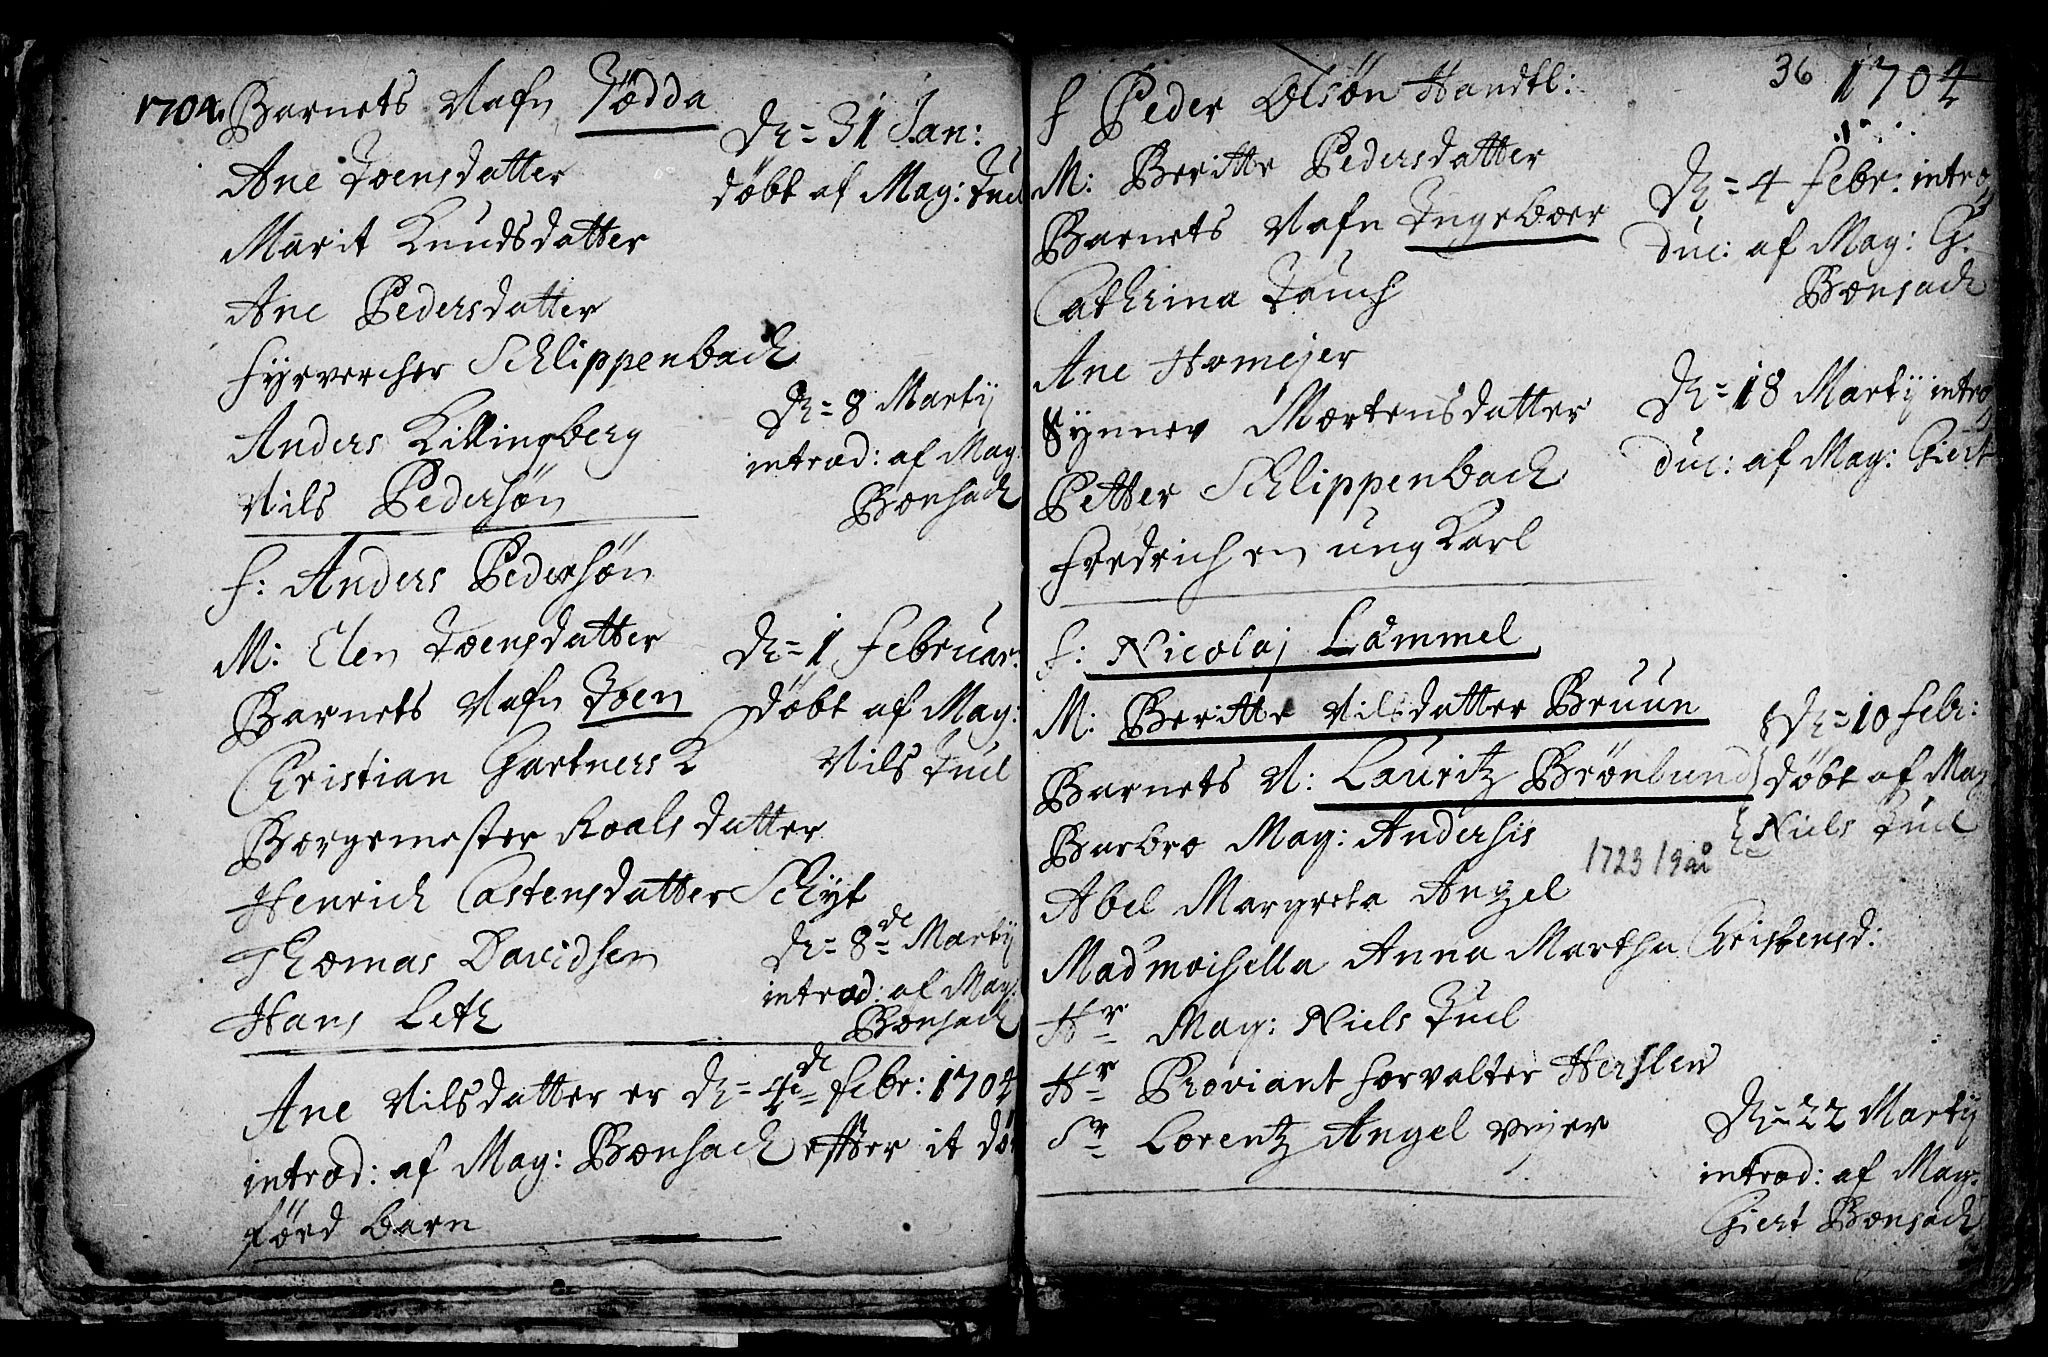 1704. Barnets Nafn Jødda
Ane Joensdatter
Marit Knudsdatter
Ane Pedersdatter
fyrvercher Schlippenbach
Anders Killingberg
Nils Pedersøn
D: = 31 Jan:
døbt af Mag: Juel
D: = 8 Marty
introd: af Mag:
Bonsach
f: Anders Pedersøn
M: Elen Joensdatter
Barnets Nafn Joen
Christian Gartners K
Borgemester Roals datter
Henrich Castensdatter Schyt
Thomas Davidsen
Hans Leth
D: = 1 Februar:
døbt af Mag:
Nils Juel
D: = 8de Marty
introd: af Mag:
Bonsach
Ane Nilsdatter er D: = 4de febr: 1704
introd: af Mag: Bonsach effter it
förd barn
36 1704
f Peder Olsøn Handtl:
M: Beritte Pedersdatter
Barnets Nafn Ingeboer
Cathrina Jauch
Ane Homejer
Synnev Mortensdatter
Petter Schlippenbach
Fredrich en ung Karl
D: = 4 febr: intro
duc: af Mag: G.
Bonsach
D: = 18 Marty intro
duc: af Mag: Giert
f: Nicolaj Lammel
M: Beritte Nilsdatter Bruun
Barnets N: Lauritz Brönlund
Barbro Mag: Andersis
Abel Margreta Angel
Madmoisella Anna Martha Christensd:
Hr Mag: Niels Juel
Hr Proviantforvalter Herslew
Sr Lorentz Angel vejer
D: = 10 febr:
døbt af Mag
Niels Juel
1723 19 aar
D: = 22 Marty
introd: af Mag:
Giert Bonsach